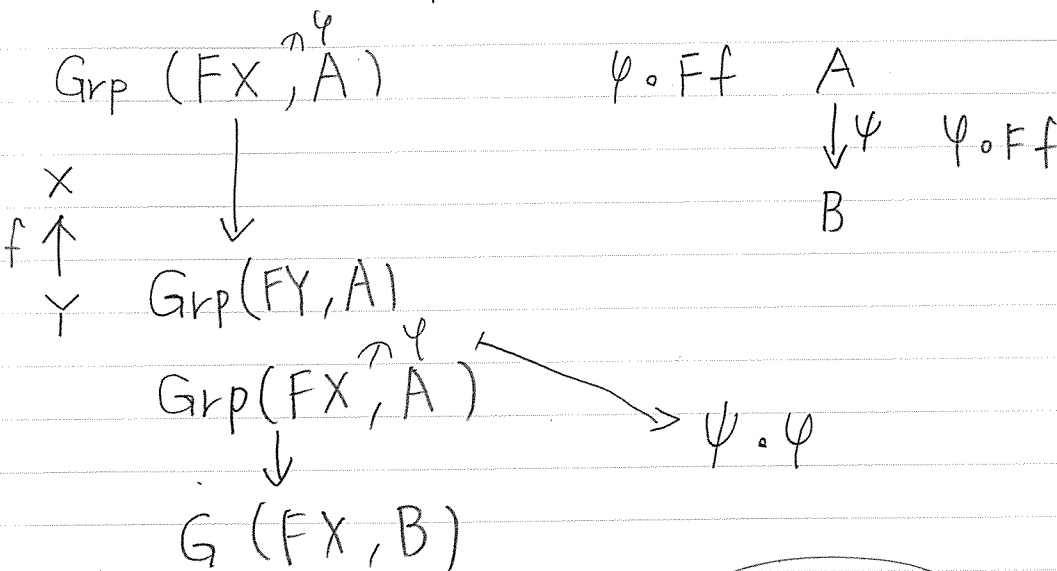 φ
Grp (FX, A) φ∘Ff A
↓ψ φ∘Ff
X
f ↑ ↓ B
Y Grp(FY, A)
φ
Grp(FX, A) ↦ ψ∘φ
↓
G (FX, B)